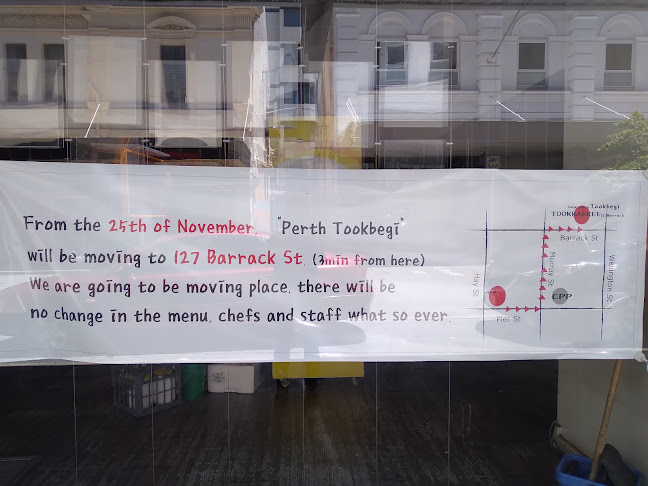 From the 25th of November, "Perth Tookbegi"
will be moving to 127 Barrack St. (3min from here)
We are going to be moving place, there will be
no change in the menu, chefs and staff what so ever.
Tookbegi
Barrack St
Hay St
Murray St
Wellington St
CPP
Pier St